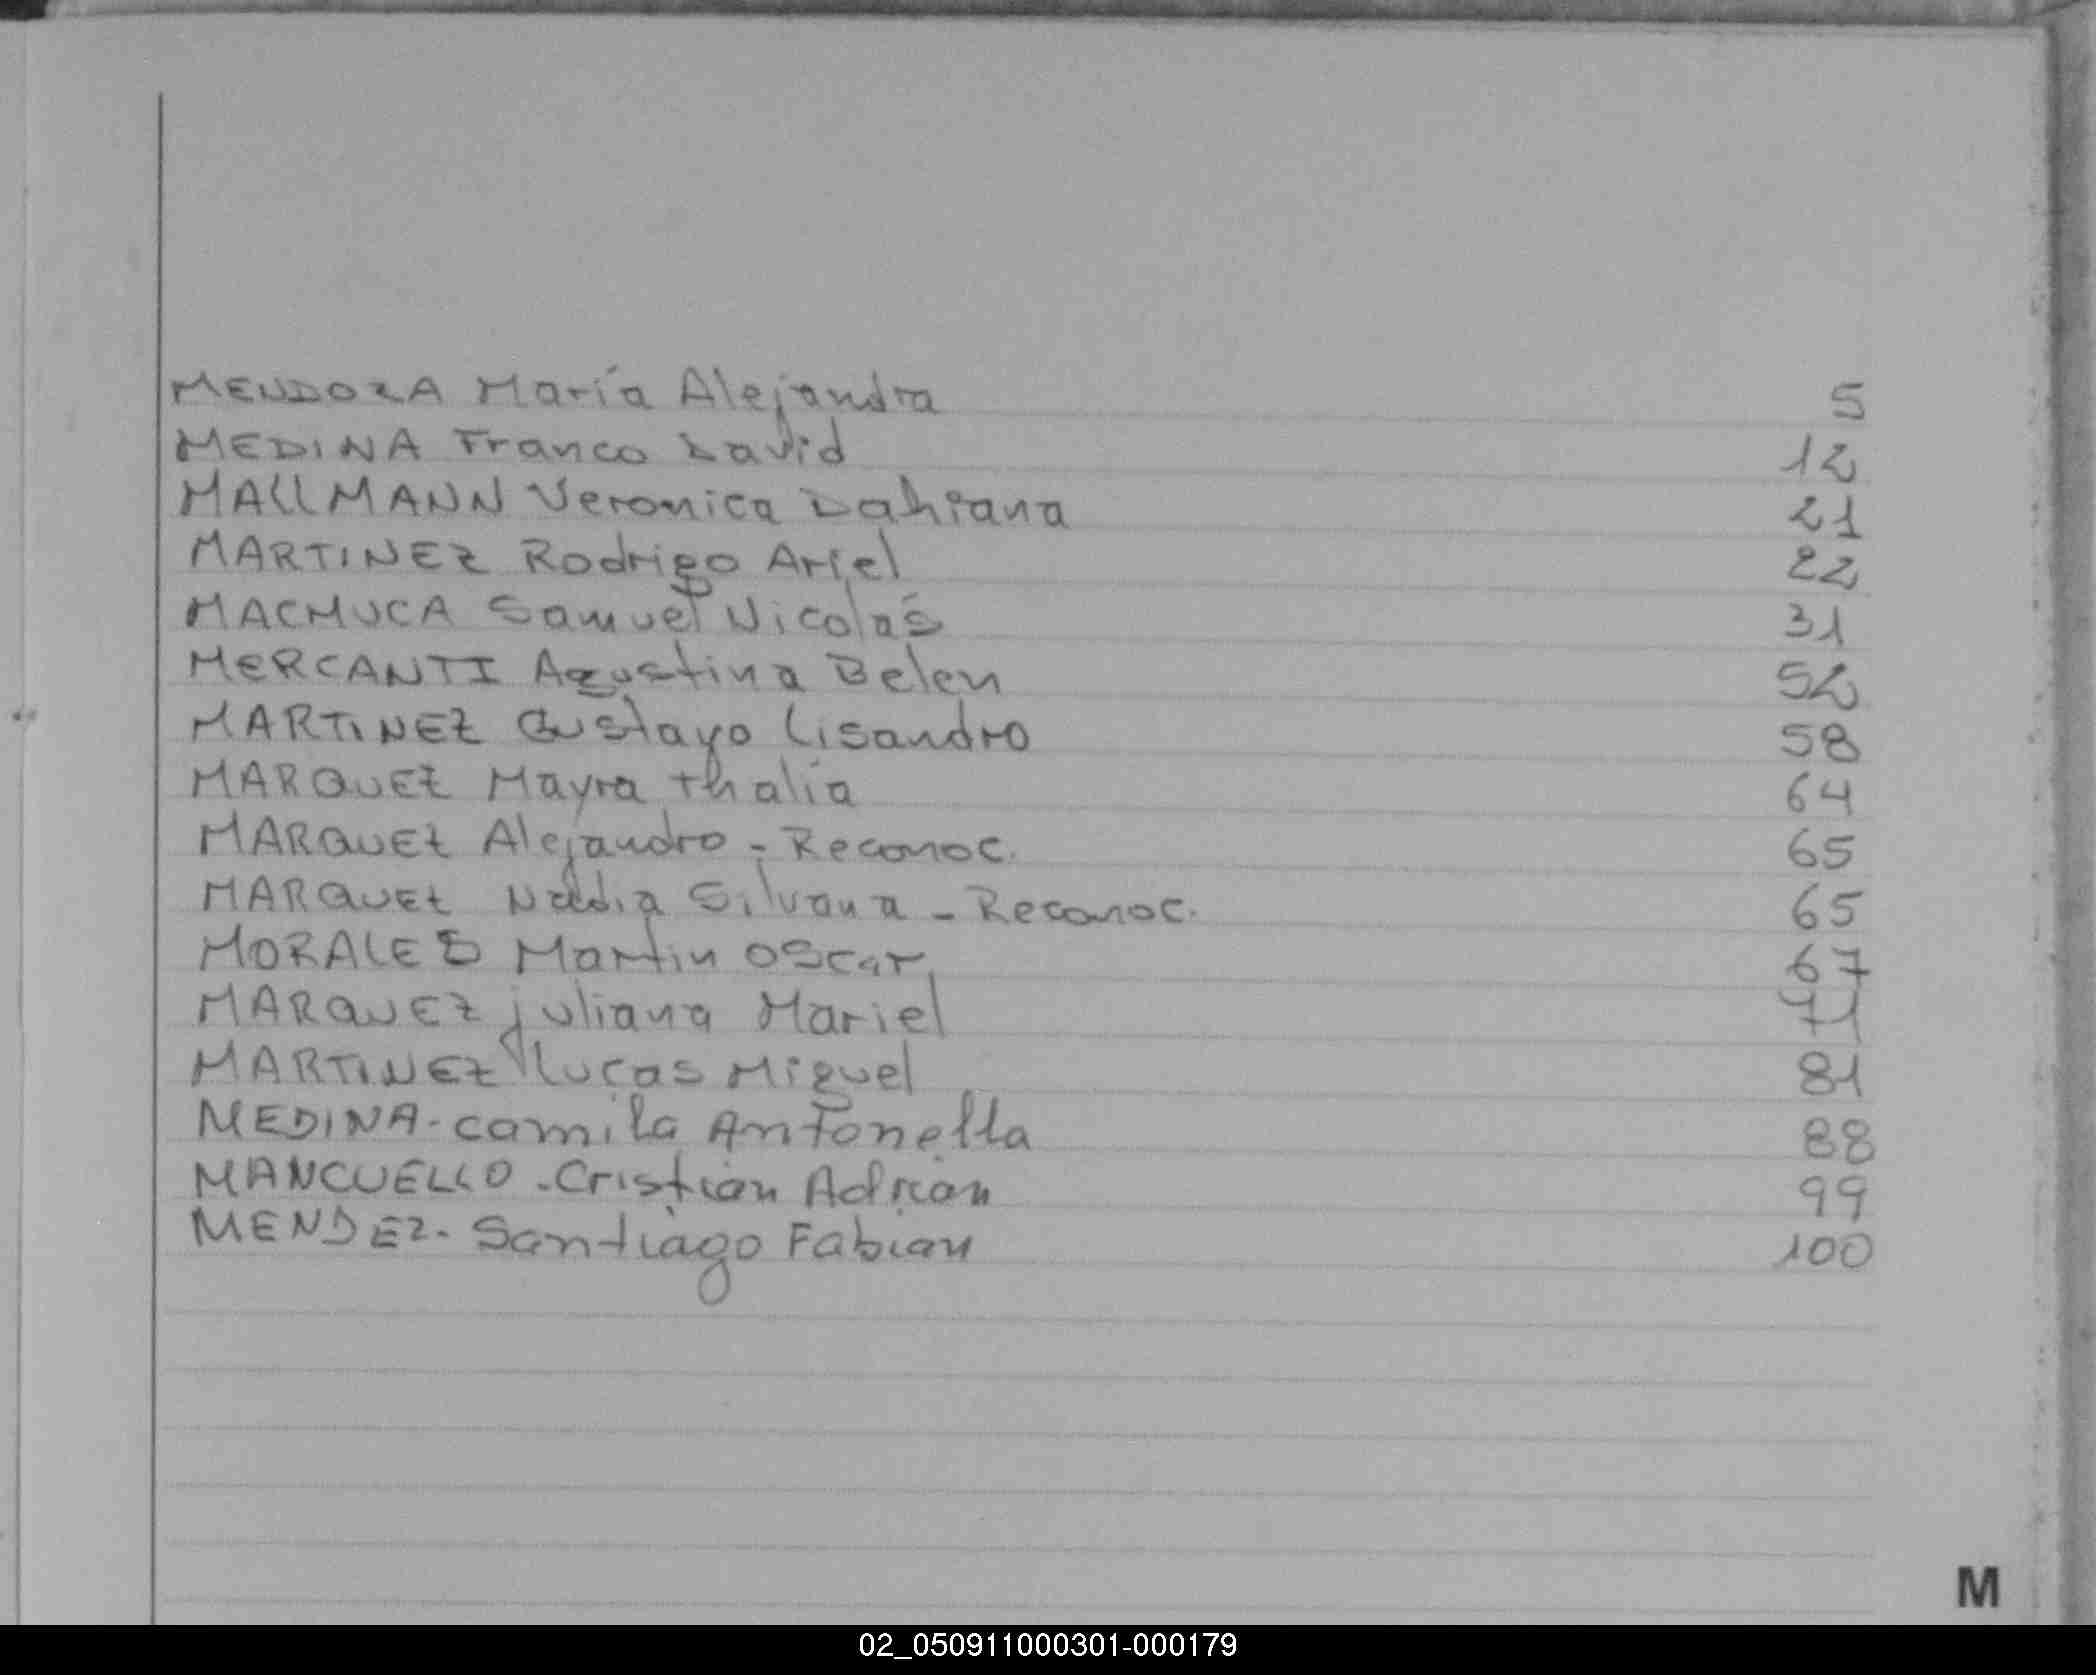 MENDOZA María Alejandra 5
MEDINA Franco David 12
MALLMANN Veronica Dahiana 21
MARTINEZ Rodrigo Ariel 22
MACHUCA Samuel Nicolás 31
MERCANTI Agustina Belen 52
MARTINEZ Gustavo Lisandro 58
MARQUEZ Mayra Thalía 64
MARQUEZ Alejandro - Reconoc. 65
MARQUEZ Silvana - Reconoc. 65
MORALES Martin Oscar 67
MARQUEZ juliana Mariel 71
MARTINEZ Lucas Miguel 81
MEDINA - camila Antonella 88
MANCUELLO - Cristian Adrian 99
MENDEZ - Santiago Fabian 100
M
02_050911000301-000179